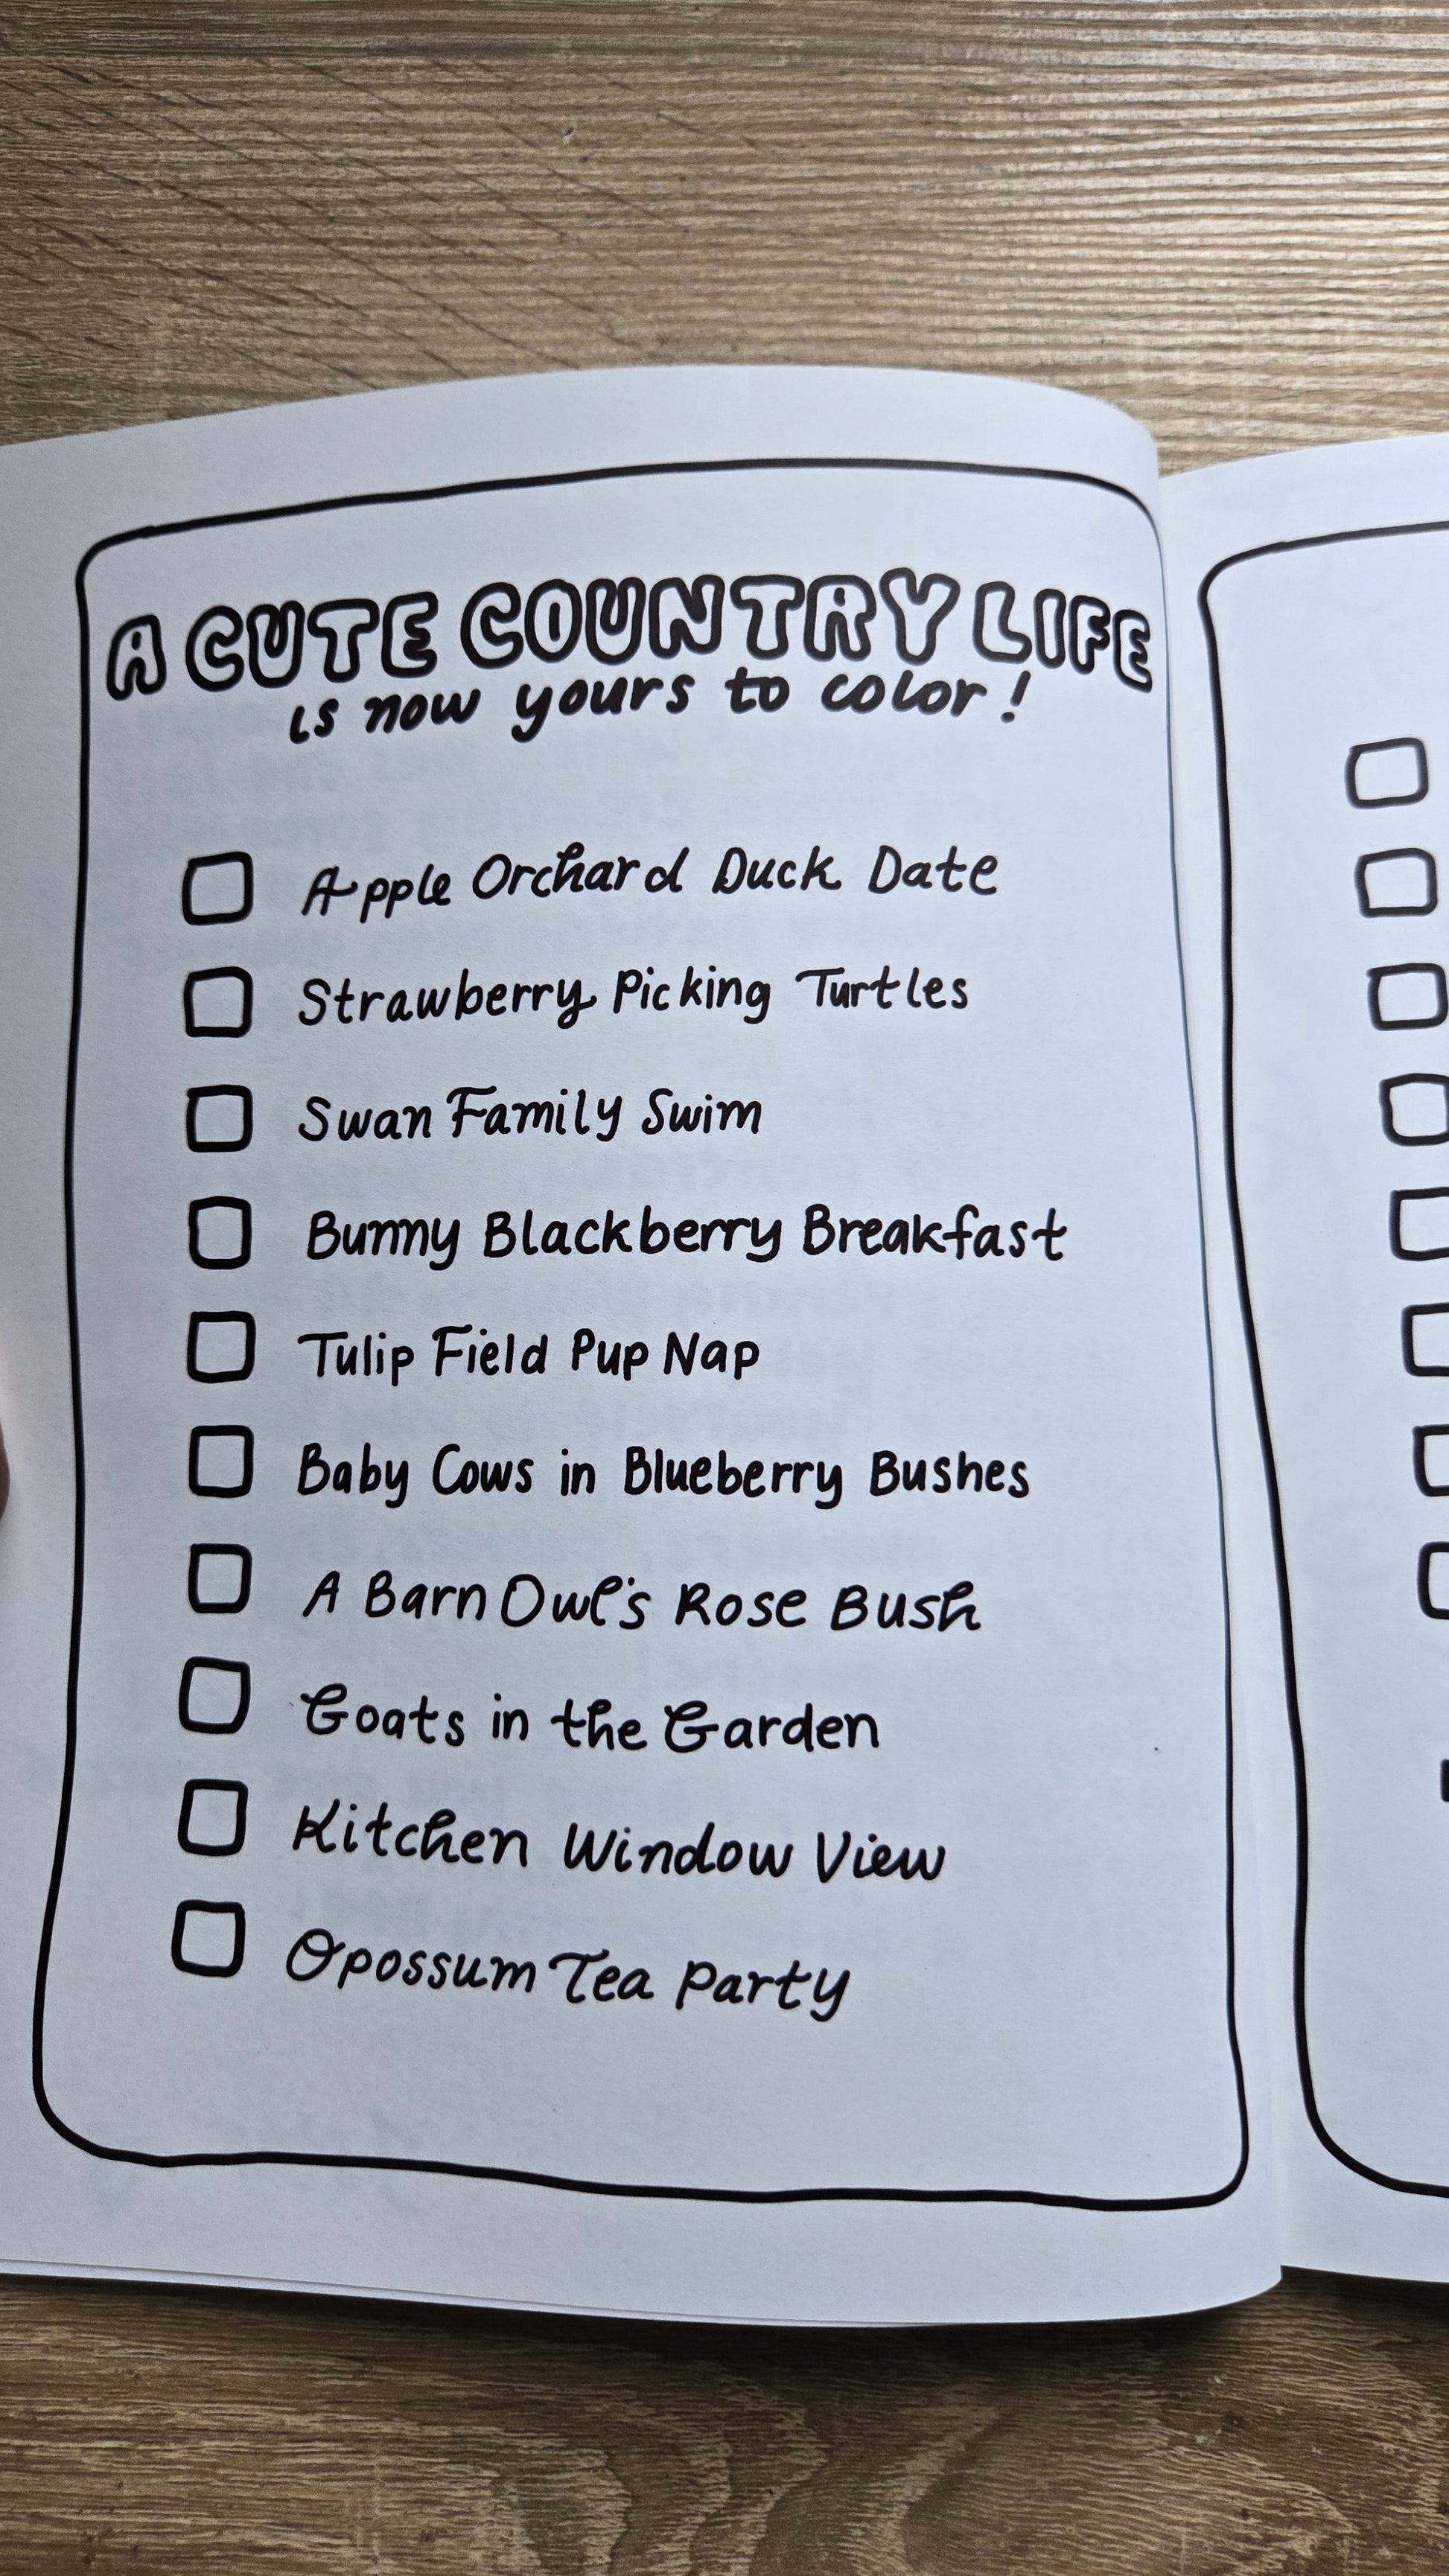 A CUTE COUNTRY LIFE
is now yours to color!
Apple Orchard Duck Date
Strawberry Picking Turtles
Swan Family Swim
Bunny Blackberry Breakfast
Tulip Field Pup Nap
Baby Cows in Blueberry Bushes
A Barn Owl's Rose Bush
Goats in the Garden
Kitchen Window View
Opossum Tea Party